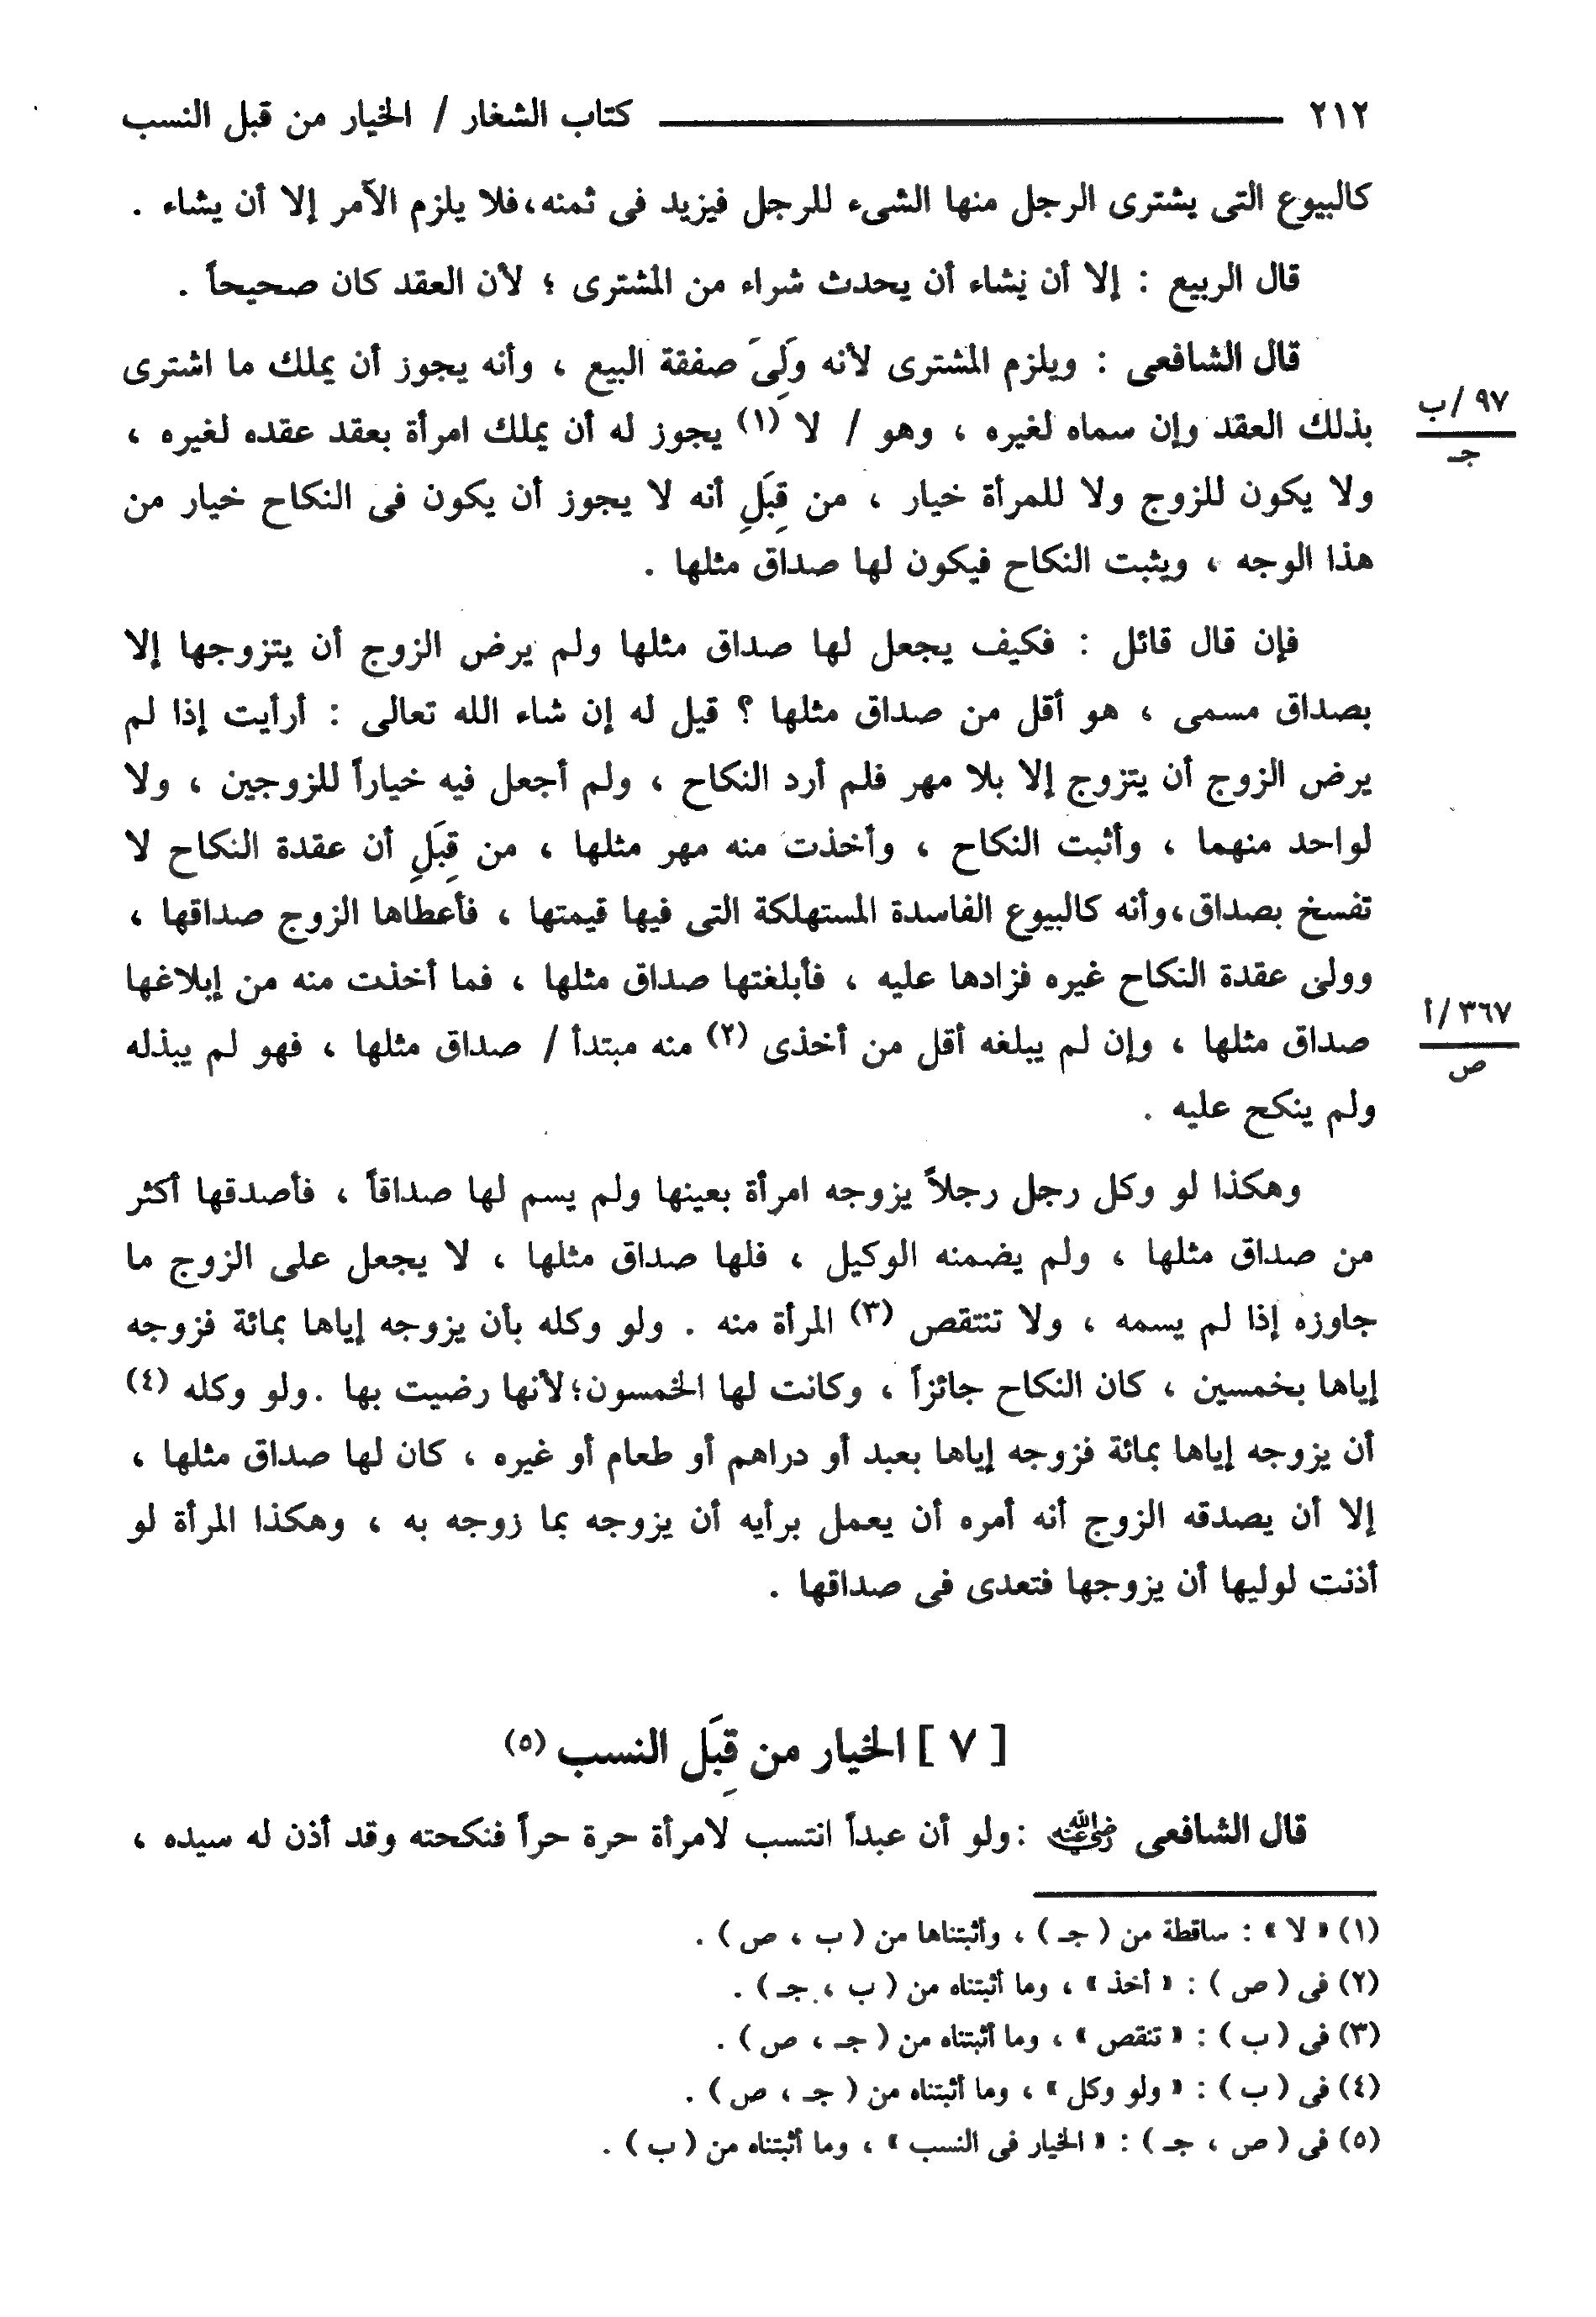 ٢١٢ كتاب الشغار / الخيار من قبل النسب
كالبيوع التى يشترى الرجل منها الشىء للرجل فيزيد فى ثمنه،فلا يلزم الآمر إلا أن يشاء .
قال الربيع : إلا أن يشاء أن يحدث شراء من المشترى ؛ لأن العقد كان صحيحاً .
قال الشافعى : ويلزم المشترى لأنه وَلِىَ صفقة البيع ، وأنه يجوز أن يملك ما اشترى
بذلك العقد وإن سماه لغيره ، وهو / لا (١) يجوز له أن يملك امرأة بعقد عقده لغيره ،
٩٧ /ب
جـ
ولا يكون للزوج ولا للمرأة خيار ، من قِبَلِ أنه لا يجوز أن يكون فى النكاح خيار من
هذا الوجه ، ويثبت النكاح فيكون لها صداق مثلها .
فإن قال قائل : فكيف يجعل لها صداق مثلها ولم يرض الزوج أن يتزوجها إلا
بصداق مسمى ، هو أقل من صداق مثلها ؟ قيل له إن شاء الله تعالى : أرأيت إذا لم
يرض الزوج أن يتزوج إلا بلا مهر فلم أرد النكاح ، ولم أجعل فيه خياراً للزوجين ، ولا
لواحد منهما ، وأثبت النكاح ، وأخذت منه مهر مثلها ، من قِبَلِ أن عقدة النكاح لا
تفسخ بصداق،وأنه كالبيوع الفاسدة المستهلكة التى فيها قيمتها ، فأعطاها الزوج صداقها ،
وولى عقدة النكاح غيره فزادها عليه ، فأبلغتها صداق مثلها ، فما أخذت منه من إبلاغها
صداق مثلها ، وإن لم يبلغه أقل من أخذى (٢) منه مبتدأ / صداق مثلها ، فهو لم يبذله
٣٦٧ /أ
ص
ولم ينكح عليه .
وهكذا لو وكل رجل رجلاً يزوجه امرأة بعينها ولم يسم لها صداقاً ، فأصدقها أكثر
من صداق مثلها ، ولم يضمنه الوكيل ، فلها صداق مثلها ، لا يجعل على الزوج ما
جاوزه إذا لم يسمه ، ولا تنتقص (٣) المرأة منه . ولو وكله بأن يزوجه إياها بمائة فزوجه
إياها بخمسين ، كان النكاح جائزاً ، وكانت لها الخمسون؛لأنها رضيت بها .ولو وكله (٤)
أن يزوجه إياها بمائة فزوجه إياها بعبد أو دراهم أو طعام أو غيره ، كان لها صداق مثلها ،
إلا أن يصدقه الزوج أنه أمره أن يعمل برأيه أن يزوجه بما زوجه به ، وهكذا المرأة لو
أذنت لوليها أن يزوجها فتعدى فى صداقها .
[ ٧ ] الخيار من قِبَل النسب (٥)
قال الشافعى رضي الله عنه :ولو أن عبداً انتسب لامرأة حرة حراً فنكحته وقد أذن له سيده ،
(١) « لا » : ساقطة من ( جـ ) ، وأثبتناها من ( ب ، ص ) .
(٢) فى ( ص ) : « أخذ » ، وما أثبتناه من ( ب ، جـ ) .
(٣) فى ( ب ) : « تنقص » ، وما أثبتناه من ( جـ ، ص ) .
(٤) فى ( ب ) : « ولو وكل » ، وما أثبتناه من ( جـ ، ص ) .
(٥) فى ( ص ، جـ ) : « الخيار فى النسب » ، وما أثبتناه من ( ب ) .